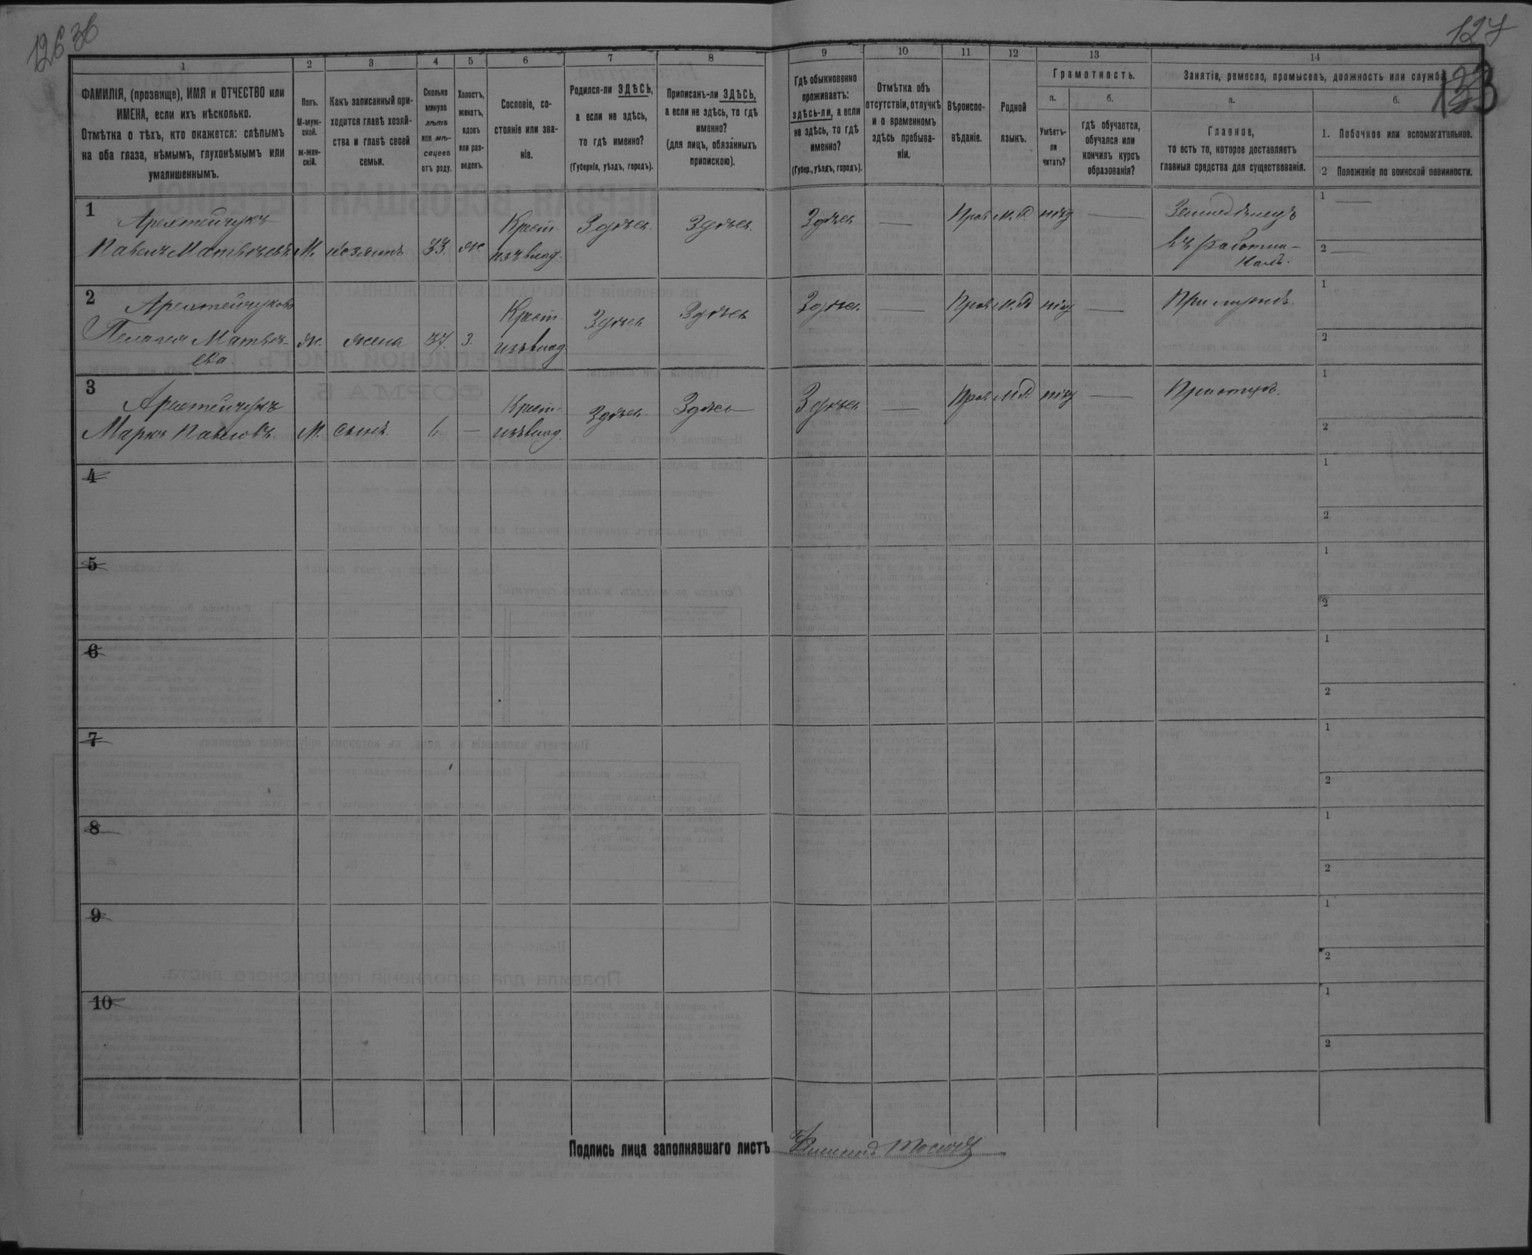 127
1
2
3
4
5
6
7
8
9
10
11
12
13
14
ФАМИЛІЯ, (прозвище), ИМЯ и ОТЧЕСТВО или
ИМЕНА, если ихъ нѣсколько.
Отмѣтка о тѣхъ, кто окажется: слѣпымъ
на оба глаза, нѣмымъ, глухонѣмымъ или
умалишеннымъ.
Полъ.
М-муж-
ской.
ж-жен-
скій.
Какъ записанный при-
ходится главѣ хозяй-
ства и главѣ своей
семьи.
Сколько
минуло
лѣтъ
или мѣ-
сяцевъ
отъ роду.
Холостъ,
женатъ,
вдовъ
или раз-
веденъ.
Сословіе, со-
стояніе или зва-
ніе.
Родился-ли ЗДѢСЬ,
а если не здѣсь,
то гдѣ именно?
(Губернія, уѣздъ, городъ).
Приписанъ-ли ЗДѢСЬ,
а если не здѣсь, то гдѣ
именно?
(для лицъ, обязанныхъ
припискою).
Гдѣ обыкновенно
проживаетъ:
здѣсь-ли, а если
не здѣсь, то гдѣ
именно?
(Губер., уѣздъ, городъ).
Отмѣтка объ
отсутствіи, отлучкѣ
и о временномъ
здѣсь пребыва-
ніи.
Вѣроиспо-
вѣданіе.
Родной
языкъ.
Грамотность.
а.
Умѣетъ-
ли
читать?
б.
гдѣ обучается,
обучался или
кончилъ курсъ
образованія?
Занятіе, ремесло, промыселъ, должность или служба.
а.
Главное,
то есть то, которое доставляетъ
главныя средства для существованія.
б.
1. Побочное или вспомогательное.
2 Положеніе по воинской повинности.
1
Павелъ Матвѣевъ М. хозяинъ 33. ж Крест. изъ влад. Здѣсь Здѣсь Здѣсь — Прав М.Р нѣтъ — Земледѣлецъ
въ работни-
кахъ.
1 —
2 —
2
Пелагея Матвѣ-
ева. ж. жена З. Крест изъ влад Здѣсь Здѣсь Здѣсь — Прав М.Р нѣтъ —
1
2
3
Марко Павловъ М. сынъ — Крест. изъ влад. Здѣсь Здѣсь Здѣсь — Прав М.Р нѣтъ —
1
2
4
1
2
5
1
2
6
1
2
7
1
2
8
1
2
9
1
2
10
1
2
Подпись лица заполнявшаго листъ